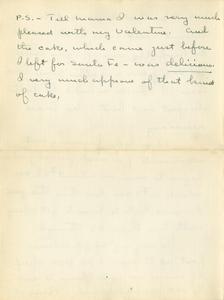 P.S. - Tell mama I was very much
pleased with my Valentine. And
the cake, which came just before
I left for Santa Fe - was delicious.
I very much approve of that kind
of cake,